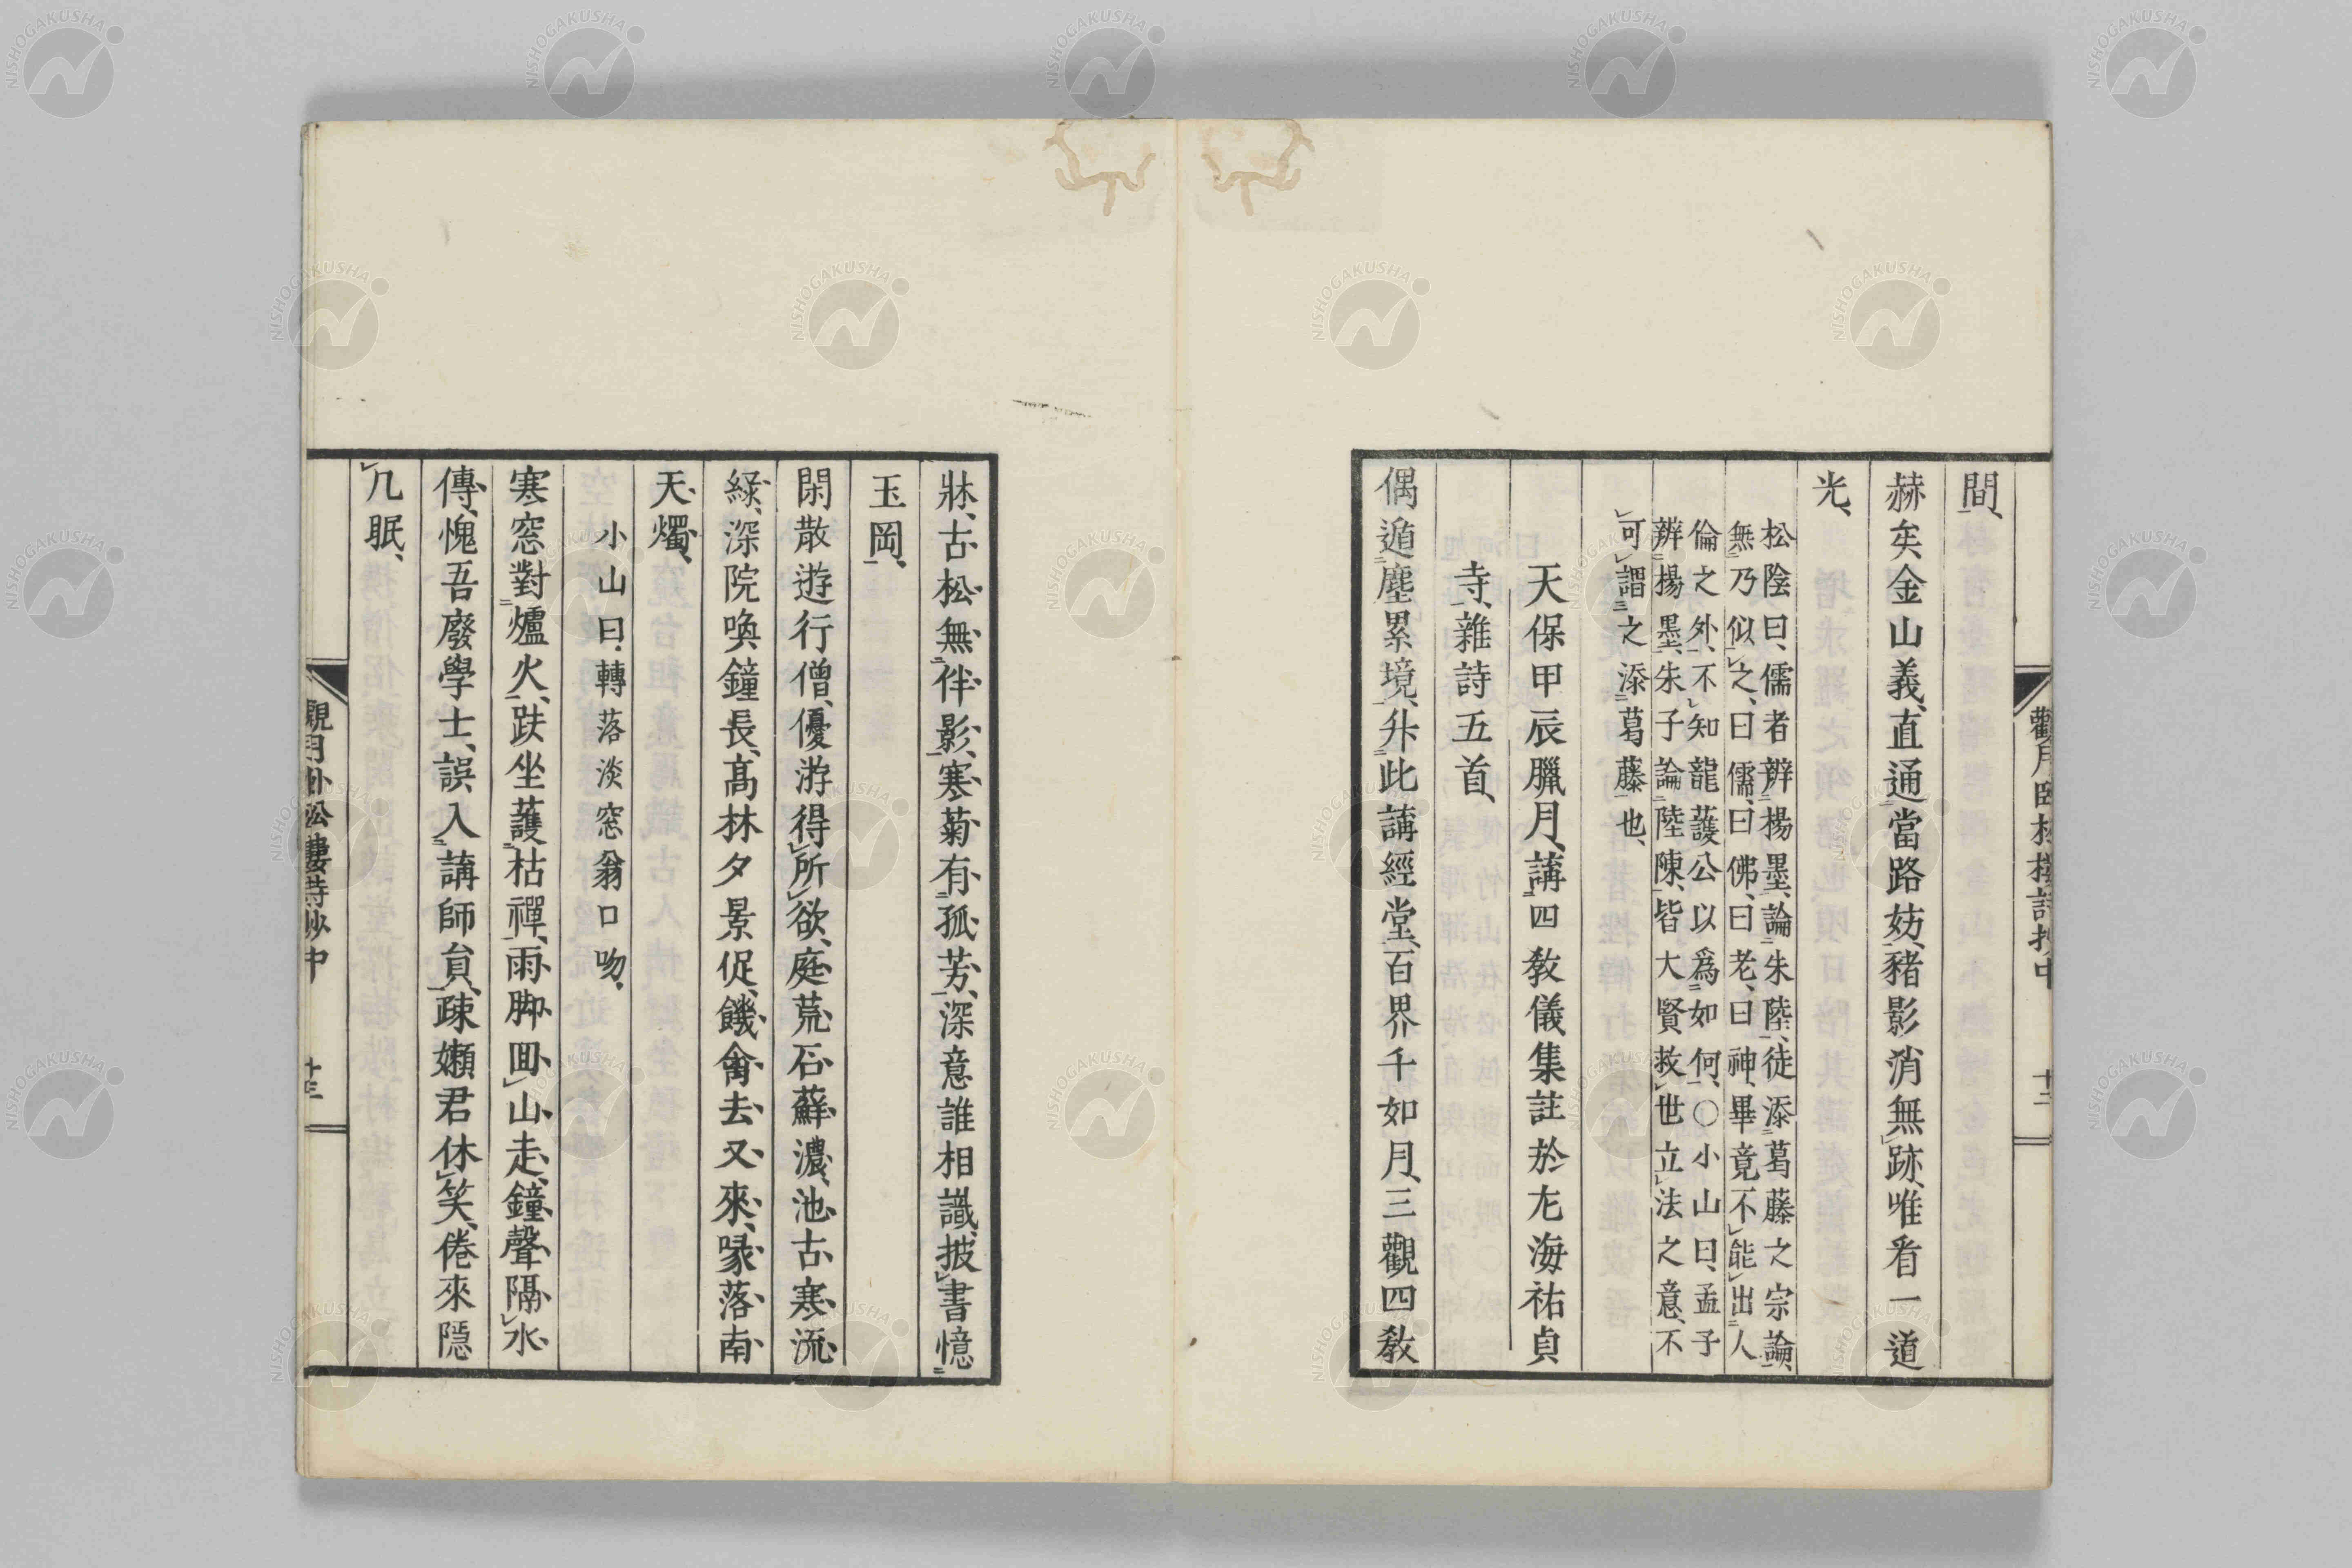 觀月臥松樓詩抄中
十二
間、
赫矣金山義、直通當路妨、豬影消無跡、唯看一道
光、
松陰曰、儒者辨楊墨、論朱陸、徒添葛藤之宗論、
無乃似之、曰儒、曰佛、曰老、曰神、畢竟不能出人
倫之外、不知龍護公以爲如何、〇小山曰、孟子
辨楊墨、朱子論陸陳、皆大賢救世立法之意、不
可謂之添葛藤也、
天保甲辰臘月、講四教儀集註於尢海祐貞
寺、雜詩五首、
偶遁塵累境、升此講經堂、百界千如月、三觀四教
牀、古松無伴影、寒菊有孤芳、深意誰相識、披書憶
玉岡、
閑散遊行僧、優游得所欲、庭荒石蘚濃、池古寒流
綠、深院喚鐘長、高林夕景促、饑禽去又來、喙落南
天燭、
小山曰、轉落淡窓翁口吻、
寒窓對爐火、趺坐護枯禪、雨脚回山走、鐘聲隔水
傳、愧吾廢學士、誤入講師員、疎嬾君休笑、倦來隱
几眠、
觀月臥松樓詩抄中
十三
NISHOGAKUSHA